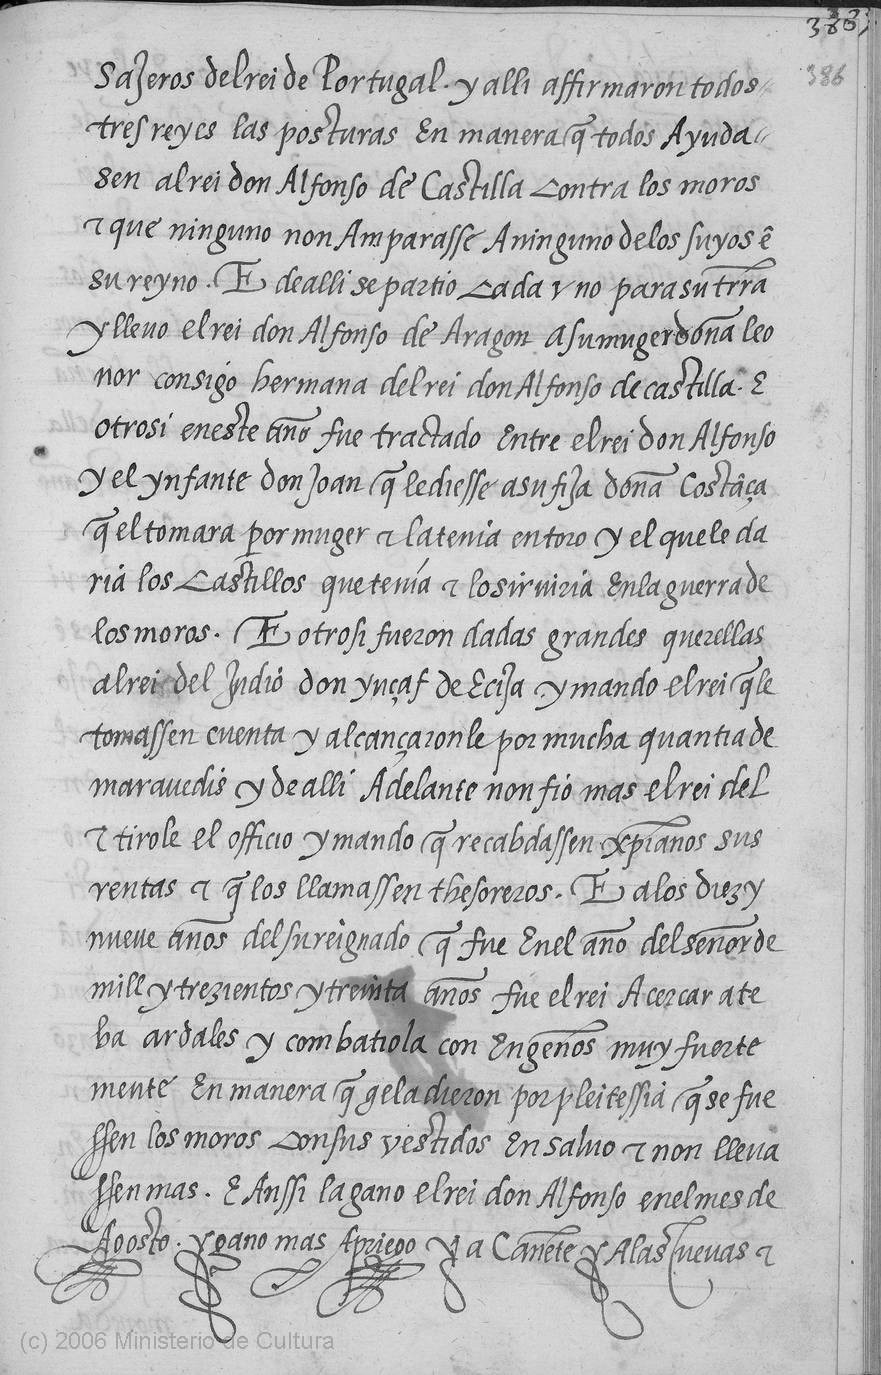 383
386
sajeros del rei de Portugal. y alli affirmaron todos
tres reyes las posturas En manera q̃ todos Ayuda
sen al rei don Alfonso de Castilla Contra los moros
⁊ que ninguno non Amparasse A ninguno de los suyos ẽ
su reyno. E de alli se partio Cada vno para su trr̃a
y lleuo el rei don Alfonso de Aragon a su muger doña leo
nor consigo hermana del rei don Alfonso de castilla. E
otrosi en este año fue tractado Entre el rei don Alfonso
y el ynfante don Joan q̃ le diesse a su fija doña Costãça
q̃ el tomara por muger ⁊ la tenia en toro y el que le da
ria los Castillos que tenia ⁊ lo siruiria En la guerra de
los moros. E otrosi fueron dadas grandes querellas
al rei del Judio don yuçaf de Ecija y mando el rei q̃ le
tomassen cuenta y alcançaronle por mucha quantia de
marauedis y de alli Adelante non fio mas el rei del
⁊ tirole el officio y mando q̃ recabdassen xp̃ianos sus
rentas ⁊ q̃ los llamassen thesoreros. E a los diez y
nueue años del su reignado q̃ fue En el año del señor de
mill y trezientos y treinta años fue el rei A cercar a te
ba ardales y combatiola con Engeños muy fuerte
mente En manera q̃ gela dieron por pleitessia q̃ se fue
ssen los moros Con sus vestidos En saluo ⁊ non lleua
ssen mas. E Anssi la gano el rei don Alfonso en el mes de
Agosto. y gano mas Apriego y a Cañete y A las Cueuas ⁊
(c) 2006 Ministerio de Cultura